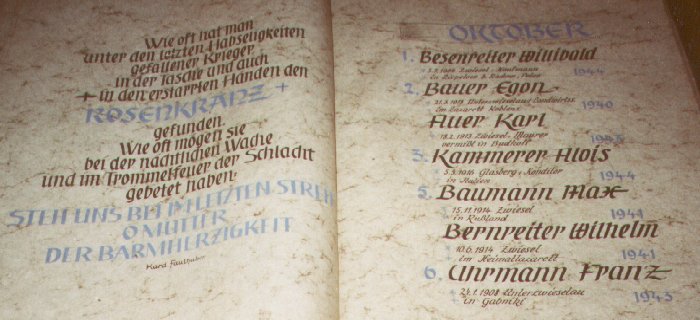 Wie oft hat man
unter den letzten Habseligkeiten
gefallener Krieger
in der Tasche und auch
+ in den erstarrten Händen den
ROSENKRANZ +
gefunden.
Wie oft mögen sie
bei der nächtlichen Wache
und im Trommelfeuer der Schlacht
gebetet haben:
STEH UNS BEI IM LETZTEN STREIT
O MUTTER
DER BARMHERZIGKEIT
OKTOBER
1. Besenreiter Willibald
Zwiesel - Kaufmann
1944
2. Bauer Egon
im Lazarett Koblenz 1940
Auer Karl
18.2.1913 Zwiesel - Maurer
vermißt in 1945
3. Kammerer Alois
5.5.1916 Glasberg - Konditor
in Italien 1944
5. Baumann Max
15.11.1914 Zwiesel
in Rußland 1941
Bernreiter Wilhelm
10.6.1914 Zwiesel
im Heimatlazarett 1941
6. Uhrmann Franz
24.1.1908 Unterzwieselau
in 1943